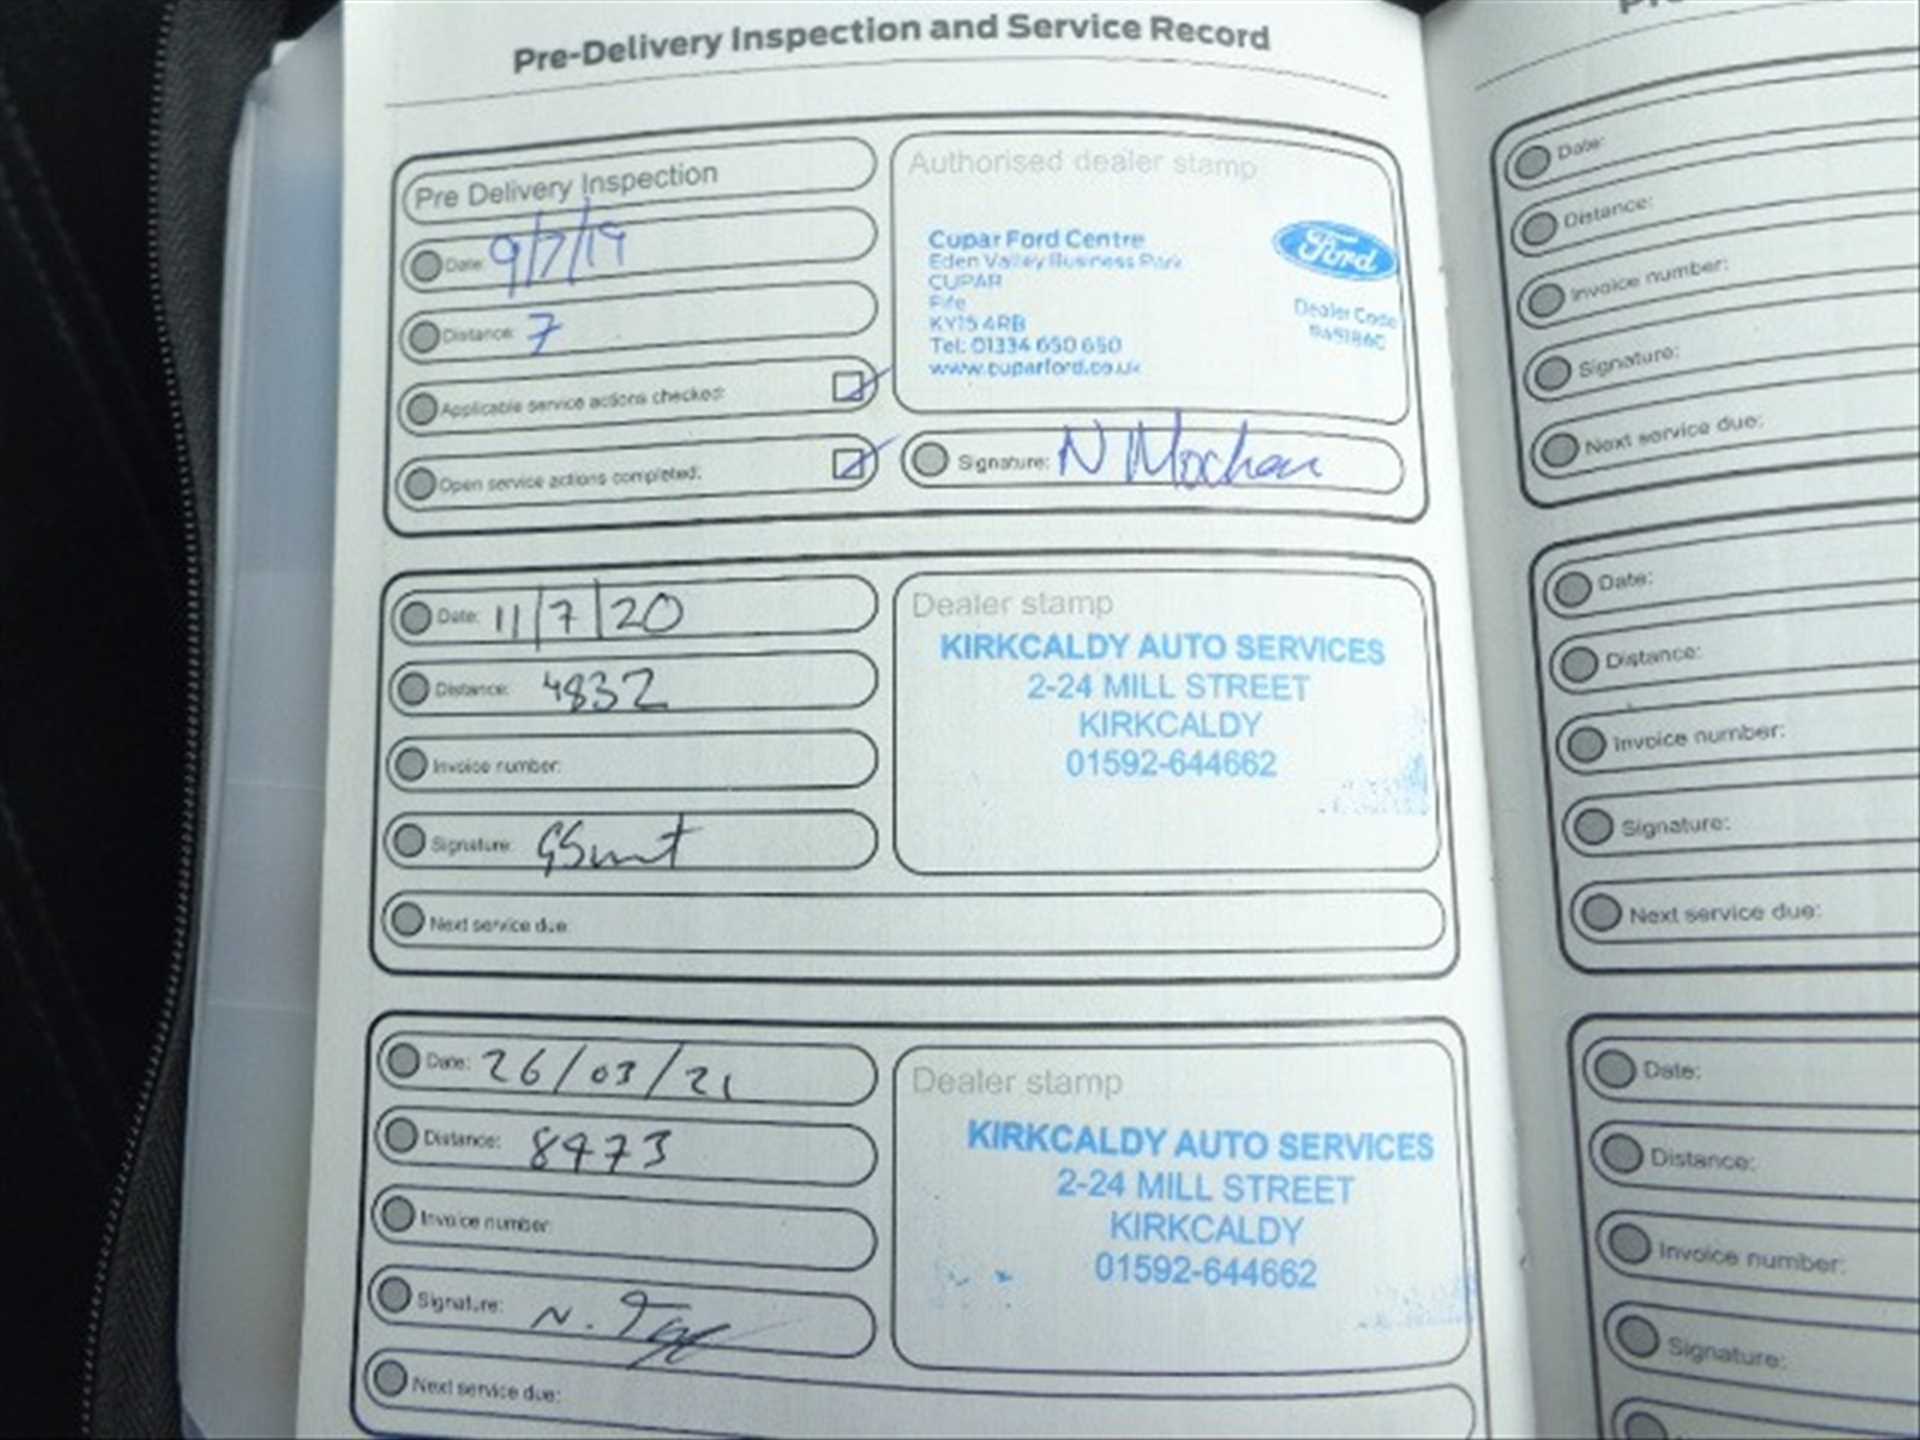 Pre-Delivery Inspection and Service Record
Pre Delivery Inspection
Date: 9/7/19
Distance: 7
Applicable service actions checked:
Open service actions completed:
Authorised dealer stamp
Cupar Ford Centre
Eden Valley Business Park
CUPAR
Fife
KY15 4RB
Tel: 01334 650 650
www.cuparford.co.uk
Ford
Dealer Code
Signature: N
Date: 11/7/20
Distance: 4832
Invoice number:
Signature:
Next service due:
Dealer stamp
KIRKCALDY AUTO SERVICES
2-24 MILL STREET
KIRKCALDY
01592-644662
Date: 26/03/21
Distance: 8973
Invoice number:
Signature: N.
Next service due:
Dealer stamp
KIRKCALDY AUTO SERVICES
2-24 MILL STREET
KIRKCALDY
01592-644662
Date:
Distance:
Invoice number:
Signature:
Next service due:
Date:
Distance:
Invoice number:
Signature:
Next service due:
Date:
Distance:
Invoice number:
Signature: